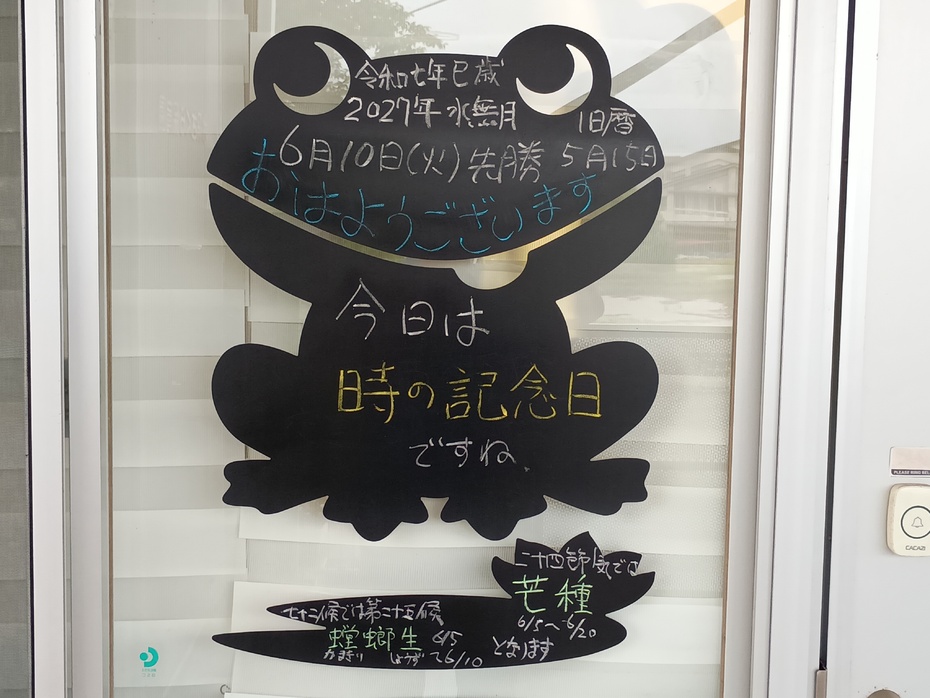 令和七年巳歳
2027年 水無月
旧暦
6月10日(火)先勝 5月15日
おはようございます
今日は
時の記念日
ですね
二十四節気では
芒種
6/5～6/20
となります
七十二候では第二十五候
螳螂生
かまきり しょうず
6/5
～6/10
PLEASE RING BELL
CACAZI